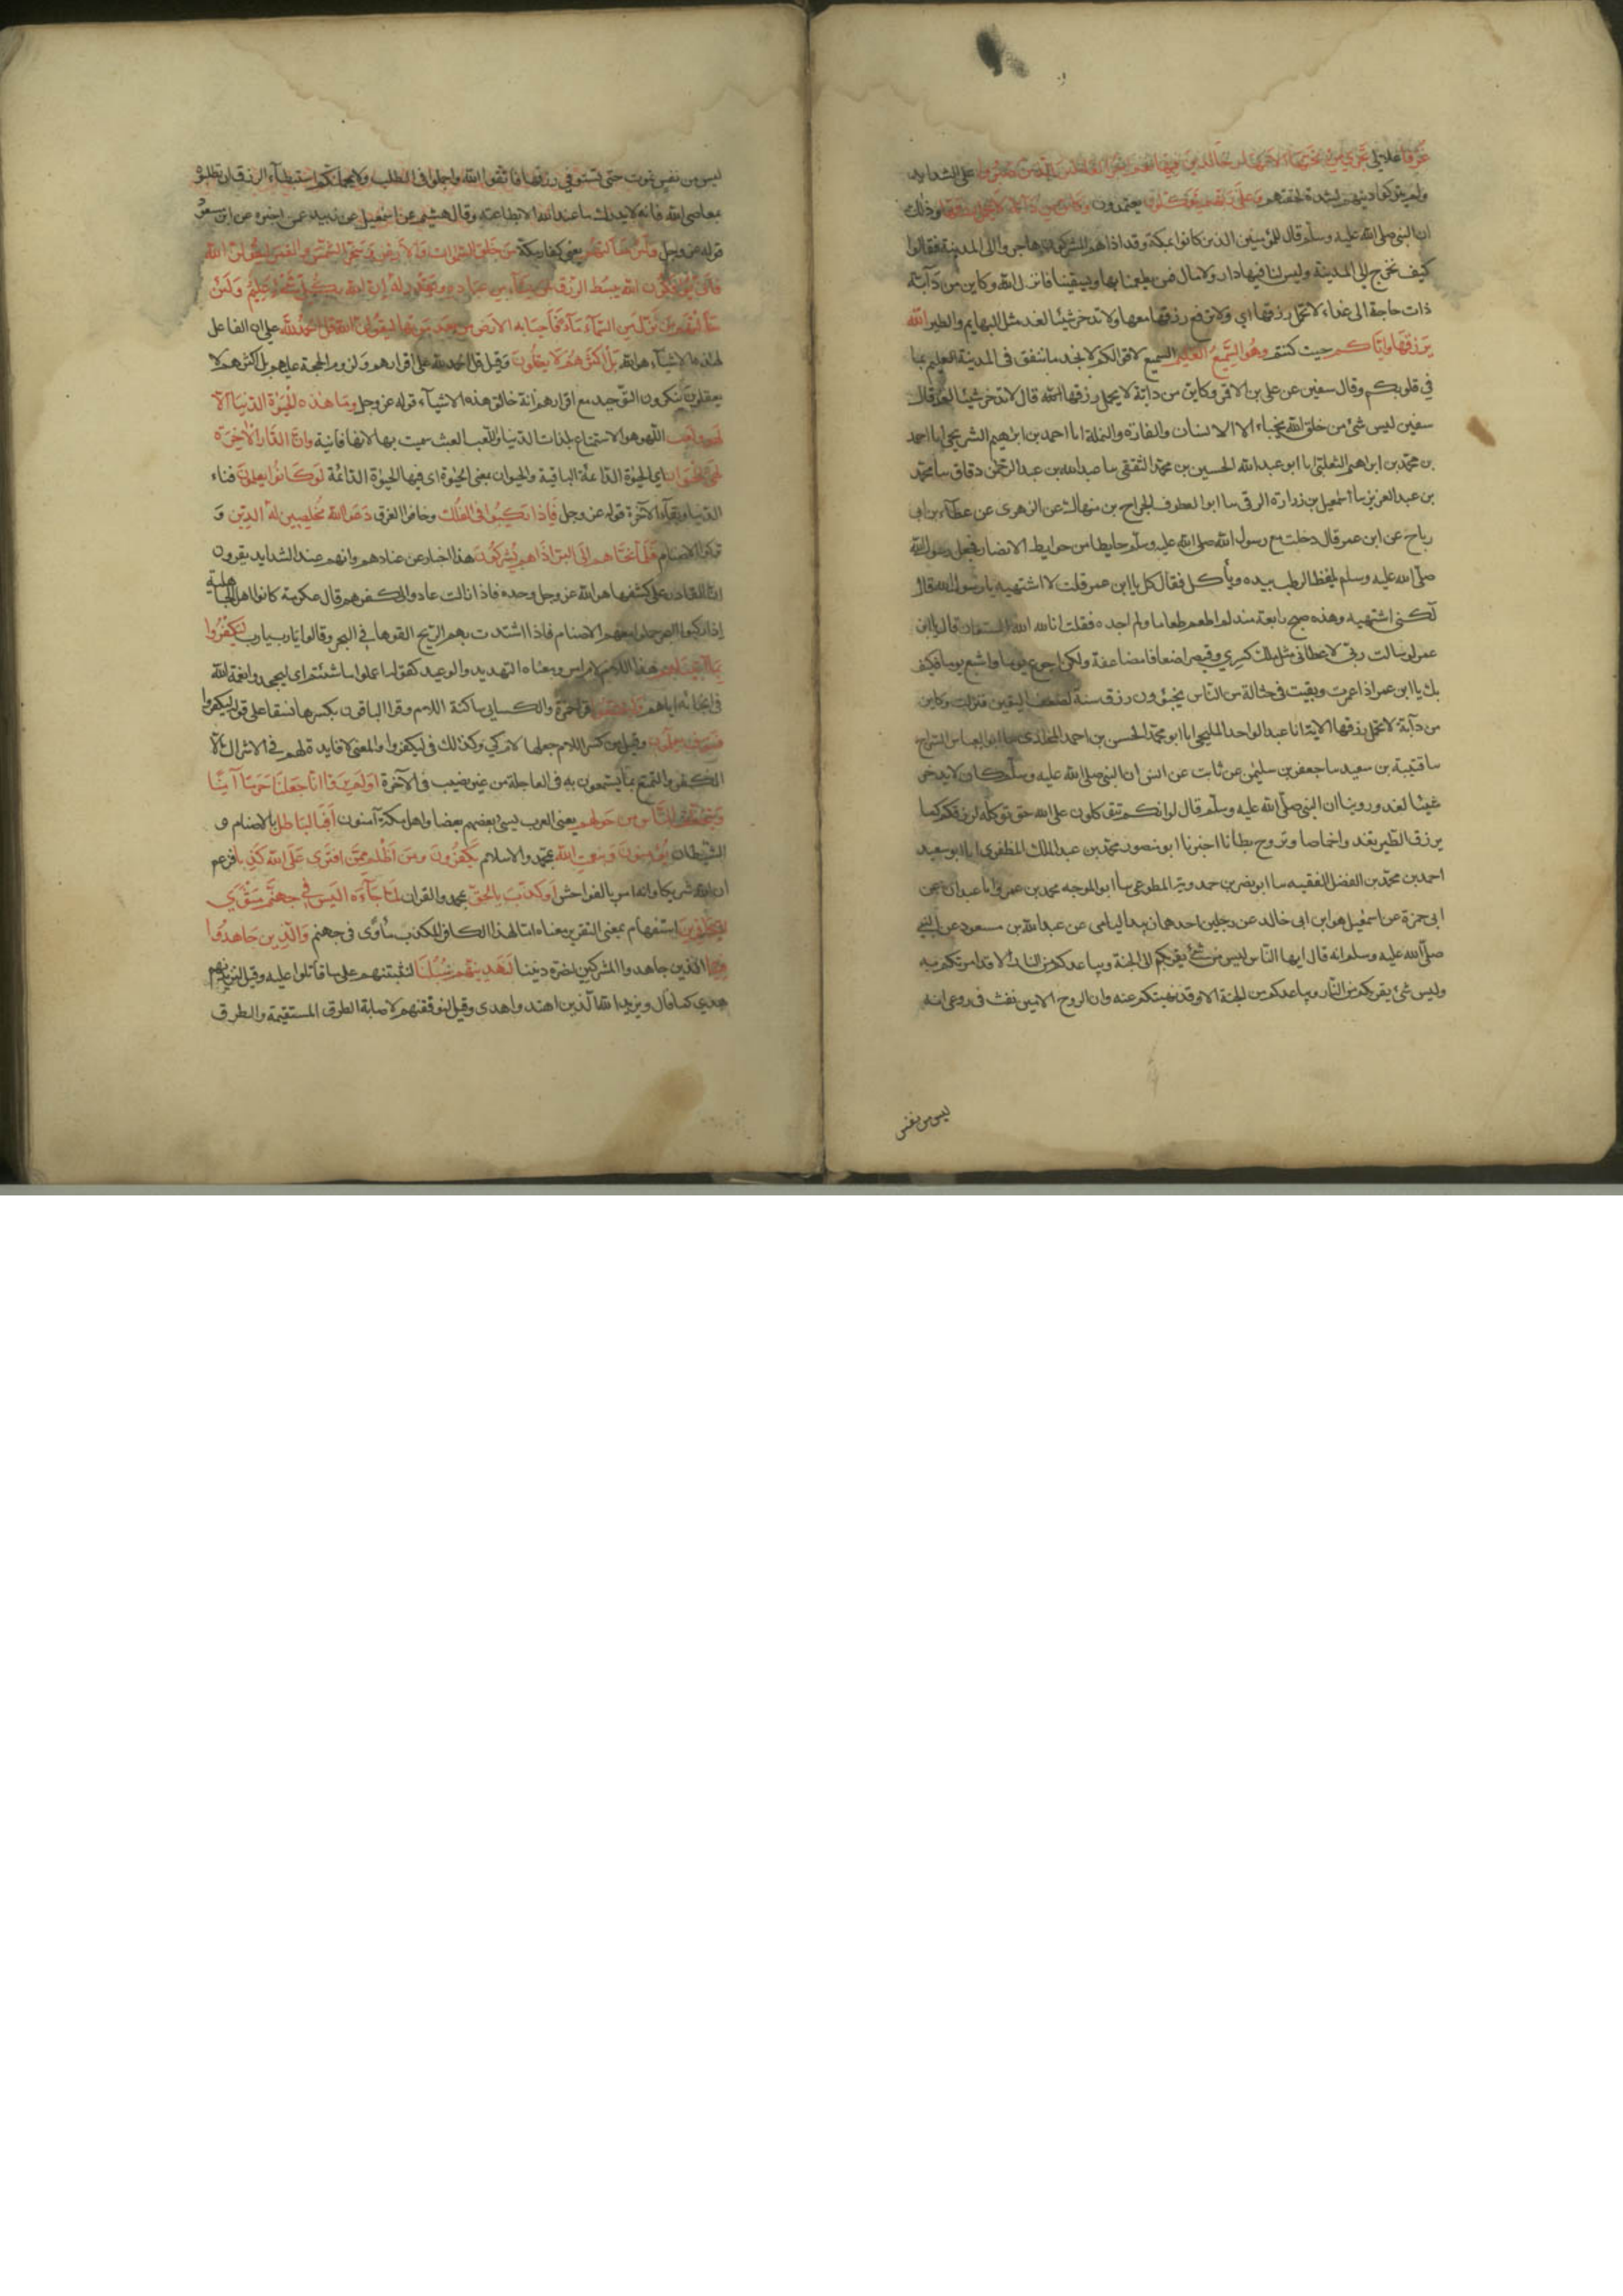 غرفا علالي تجري من تحتها الانهار خالدين فيها نعم اجر العاملين الذين صبروا على الشدايد
ولم يتركوا دينهم لشدة لحقتهم وعلى ربهم يتوكلون يعتمدون وكاين من دابة لا تحمل رزقها وذلك
ان النبي صلى الله عليه وسلم قال للمؤمنين الذين كانوا بمكة وقد اذاهم المشركون هاجروا الى المدينة فقالوا
كيف نخرج الى المدينة وليس لنا فيها دار ولا مال فمن يطعمنا بها ويسقينا فانزل الله وكاين من دآبة
ذات حاجة الى غذاء لا تحمل رزقها اي ولا ترفع رزقها معها ولا تدخر شيئا لغد مثل البهايم والطير الله
يرزقها واياكم حيث كنتم وهو السميع العليم السميع لاقوالكم لا نجد ما ننفق في المدينة العليم بما
في قلوبكم وقال سفين عن علي بن الاقمر وكاين من دابة لا تحمل رزقها الله قال لا تدخر شيئا لغد قال
سفين ليس شئ من خلق الله يخباء الا الانسان والفارة والنملة انا احمد بن ابرهيم الشريحي انا احمد
بن محمد بن ابراهيم الثعلبي انا ابو عبد الله الحسين بن محمد الثقفي سا عبد الله بن عبد الرحمن دقاق سا محمد
بن عبد العزيز سا اسمعيل بن زرارة الرقي سا ابو العطوف الجراح بن منهال عن الزهري عن عطآء بن ابي
رباح عن ابن عمر قال دخلت مع رسول الله صلى الله عليه وسلم حايطا من حوايط الانصار فجعل رسول الله
صلى الله عليه وسلم يلقط الرطب بيده ويأكل فقال كل يا ابن عمر قلت لا اشتهيه يا رسول الله قال
لكني اشتهيه وهذه صبح رابعة منذ لم اطعم طعاما ولم اجده فقلت انا لله الله المستعان قال يا ابن
عمر لو سالت ربي لاعطاني مثل ملك كسرى وقيصر اضعافا مضاعفة ولكن اجوع يوما واشبع يوما فكيف
بك يا ابن عمر اذا عمرت وبقيت في حثالة من الناس يخبئون رزق سنة لضعف اليقين فنزلت وكاين
من دآبة لا تحمل رزقها الاية انا عبد الواحد المليحي انا ابو محمد الحسن بن احمد المخلدي سا ابو العباس السراج
سا قتيبة بن سعيد سا جعفر بن سليمن عن ثابت عن انس ان النبي صلى الله عليه وسلم كان لا يدخر
شيئا لغد وروينا ان النبي صلى الله عليه وسلم قال لو انكم تتوكلون على الله حق توكله لرزقكم كما
يرزق الطير تغد واخماصا وتروح بطانا اخبرنا ابو منصور محمد بن عبد الملك المظفري انا ابو سعيد
احمد بن محمد بن الفضل الفقيه سا ابو نصر بن حمدويه المطوعي سا ابو الموجه محمد بن عمرو انا عبدان عن
ابي حمزة عن اسمعيل هو ابن ابي خالد عن رجلين احدهما زبيد اليامي عن عبد الله بن مسعود عن النبي
صلى الله عليه وسلم انه قال ايها الناس ليس من شئ يقربكم الى الجنة ويباعدكم من النار الا قد امرتكم به
وليس شئ يقربكم من النار ويباعدكم من الجنة الا وقد نهيتكم عنه وان الروح الامين نفث في روعي انه
ليس من نفس
ليس من نفس تموت حتى تستوفي رزقها فاتقوا الله واجملوا في الطلب ولا يحملنكم استبطآء الرزق ان تطلبوه
بمعاصي الله فانه لا يدرك ما عند الله الا بطاعته وقال هشيم عن اسمعيل عن زبيد عمن اخبره عن ابن مسعود
قوله عز وجل ولئن سالتهم يعني كفار مكة من خلق السموات والارض وسخر الشمس والقمر ليقولن الله
فانى يؤفكون الله يبسط الرزق لمن يشآء من عباده ويقدر له ان الله بكل شئ عليم ولئن
سألتهم من نزل من السمآء مآء فأحيا به الارض من بعد موتها ليقولن الله قل الحمد لله على ان الفاعل
لهذه الاشيآء هو الله بل اكثرهم لا يعقلون وقيل قل الحمد لله على اقرارهم ولزوم الحجة عليهم بل اكثرهم لا
يعقلون ينكرون التوحيد مع اقرارهم انه خالق هذه الاشيآء قوله عز وجل وما هذه الحيوة الدنيا الا
لهو ولعب اللهو هو الاستمتاع بلذات الدنيا واللعب العبث سميت بها لانها فانية وان الدار الاخرة
لهي الحيوان اي الحيوة الدائمة الباقية والحيوان بمعنى الحيوة اي فيها الحيوة الدائمة لو كانوا يعلمون فناء
الدنيا وبقآء الآخرة قوله عز وجل فاذا ركبوا في الفلك وخافوا الغرق دعوا الله مخلصين له الدين و
تركوا الاصنام فلما نجاهم الى البر اذا هم يشركون هذا اخبار عن عنادهم وانهم عند الشدايد يقرون
ان القادر على كشفها هو الله عز وجل وحده فاذا زالت عادوا الى كفرهم قال عكرمة كانوا اهل الجاهلية
اذا ركبوا البحر حملوا معهم الاصنام فاذا اشتدت بهم الريح القوها في البحر وقالوا يا رب يا رب ليكفروا
بما آتيناهم هذا اللام لام امر ومعناه التهديد والوعيد كقوله اعملوا ما شئتم اي ليجحدوا نعمة الله
في انجائه اياهم وليتمتعوا قرا حمزة والكسايي ساكنة اللام وقرا الباقون بكسرها نسقا على قوله ليكفروا
فسوف يعلمون وقيل من كسر اللام جعلها لام كي وكذلك في ليكفروا والمعنى لا فايدة لهم في الاشراك الا
الكفر والتمتع بما يستمتعون به في العاجلة من غير نصيب في الآخرة اولم يروا انا جعلنا حرما آمنا
ويتخطف الناس من حولهم يعني العرب يسبي بعضهم بعضا واهل مكة آمنون أفبالباطل بالاصنام و
الشيطان يؤمنون وبنعمة الله بمحمد والاسلام يكفرون ومن اظلم ممن افترى على الله كذبا فزعم
ان لله شريكا وانه امر بالفواحش او كذب بالحق بمحمد والقران لما جآءه اليس في جهنم مثوى
للكافرين استفهام بمعنى التقرير معناه اما لهذا الكافر المكذب مأوى في جهنم والذين جاهدوا
فينا الذين جاهدوا المشركين لنصرة ديننا لنهدينهم سبلنا لنثبتنهم على ما قاتلوا عليه وقيل لنزيدنهم
هدى كما قال ويزيد الله الذين اهتدوا هدى وقيل لنوفقنهم لاصابة الطرق المستقيمة والطرق